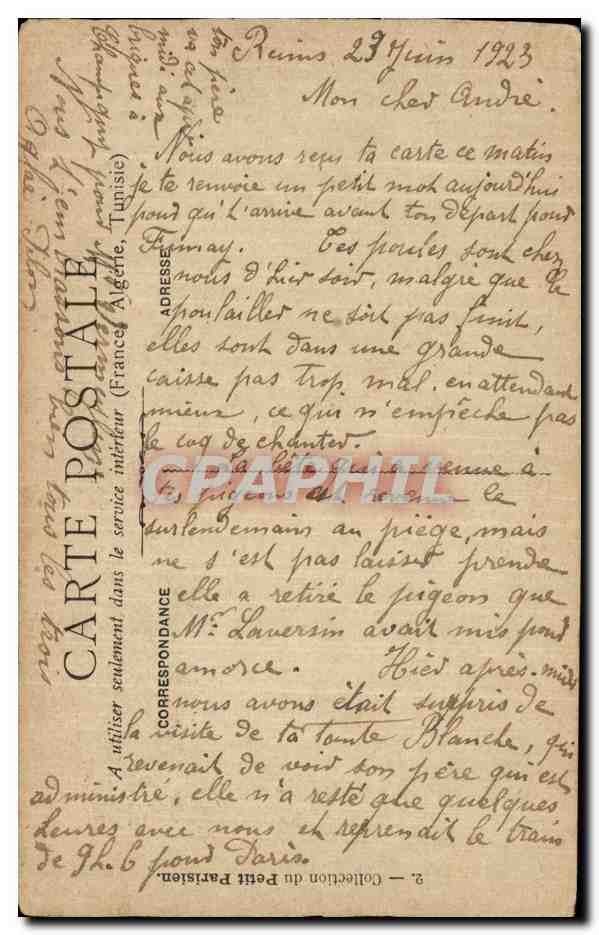 Reims 29 Juin 1923
Mon cher André.
Nous avons reçu ta carte ce matin
je te renvoie un petit mot aujourd'hui
pour qu'l'arrive avant ton départ pour
Fumay. Tes poules sont chez
nous d'hier soir, malgré que le
poulailler ne soit pas finit,
elles sont dans une grande
caisse pas trop mal. en attendant
mieux, ce qui n'empêche pas
le coq de chanter.
la bête qui a venue à
tes pigeons est revenu le
surlendemain au piège, mais
ne s'est pas laisser prendre
elle a retiré le pigeon que
Mr. Laversin avait mis pour
amorce. Hier après-midi
nous avons était surpris de
la visite de ta tante Blanche, qui
revenait de voir son père qui est
administré, elle n'a resté que quelques
heures avec nous et reprenait le train
de 9h.6 pour Paris.
ton père
va cet après
midi aux
briques à
Champigny pour
Nous t'embrassons bien tous les trois
CARTE POSTALE
A utiliser seulement dans le service intérieur (France, Algérie, Tunisie)
CORRESPONDANCE
ADRESSE
2. — Collection du Petit Parisien.
CPAPHIL